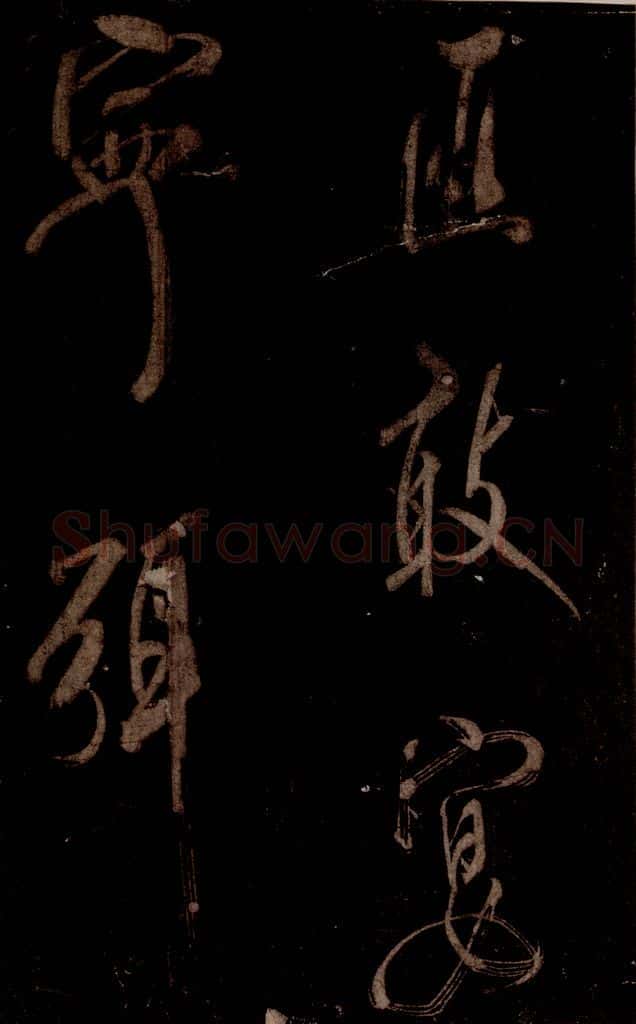 敢宴
寧弭
Shufawang.CN